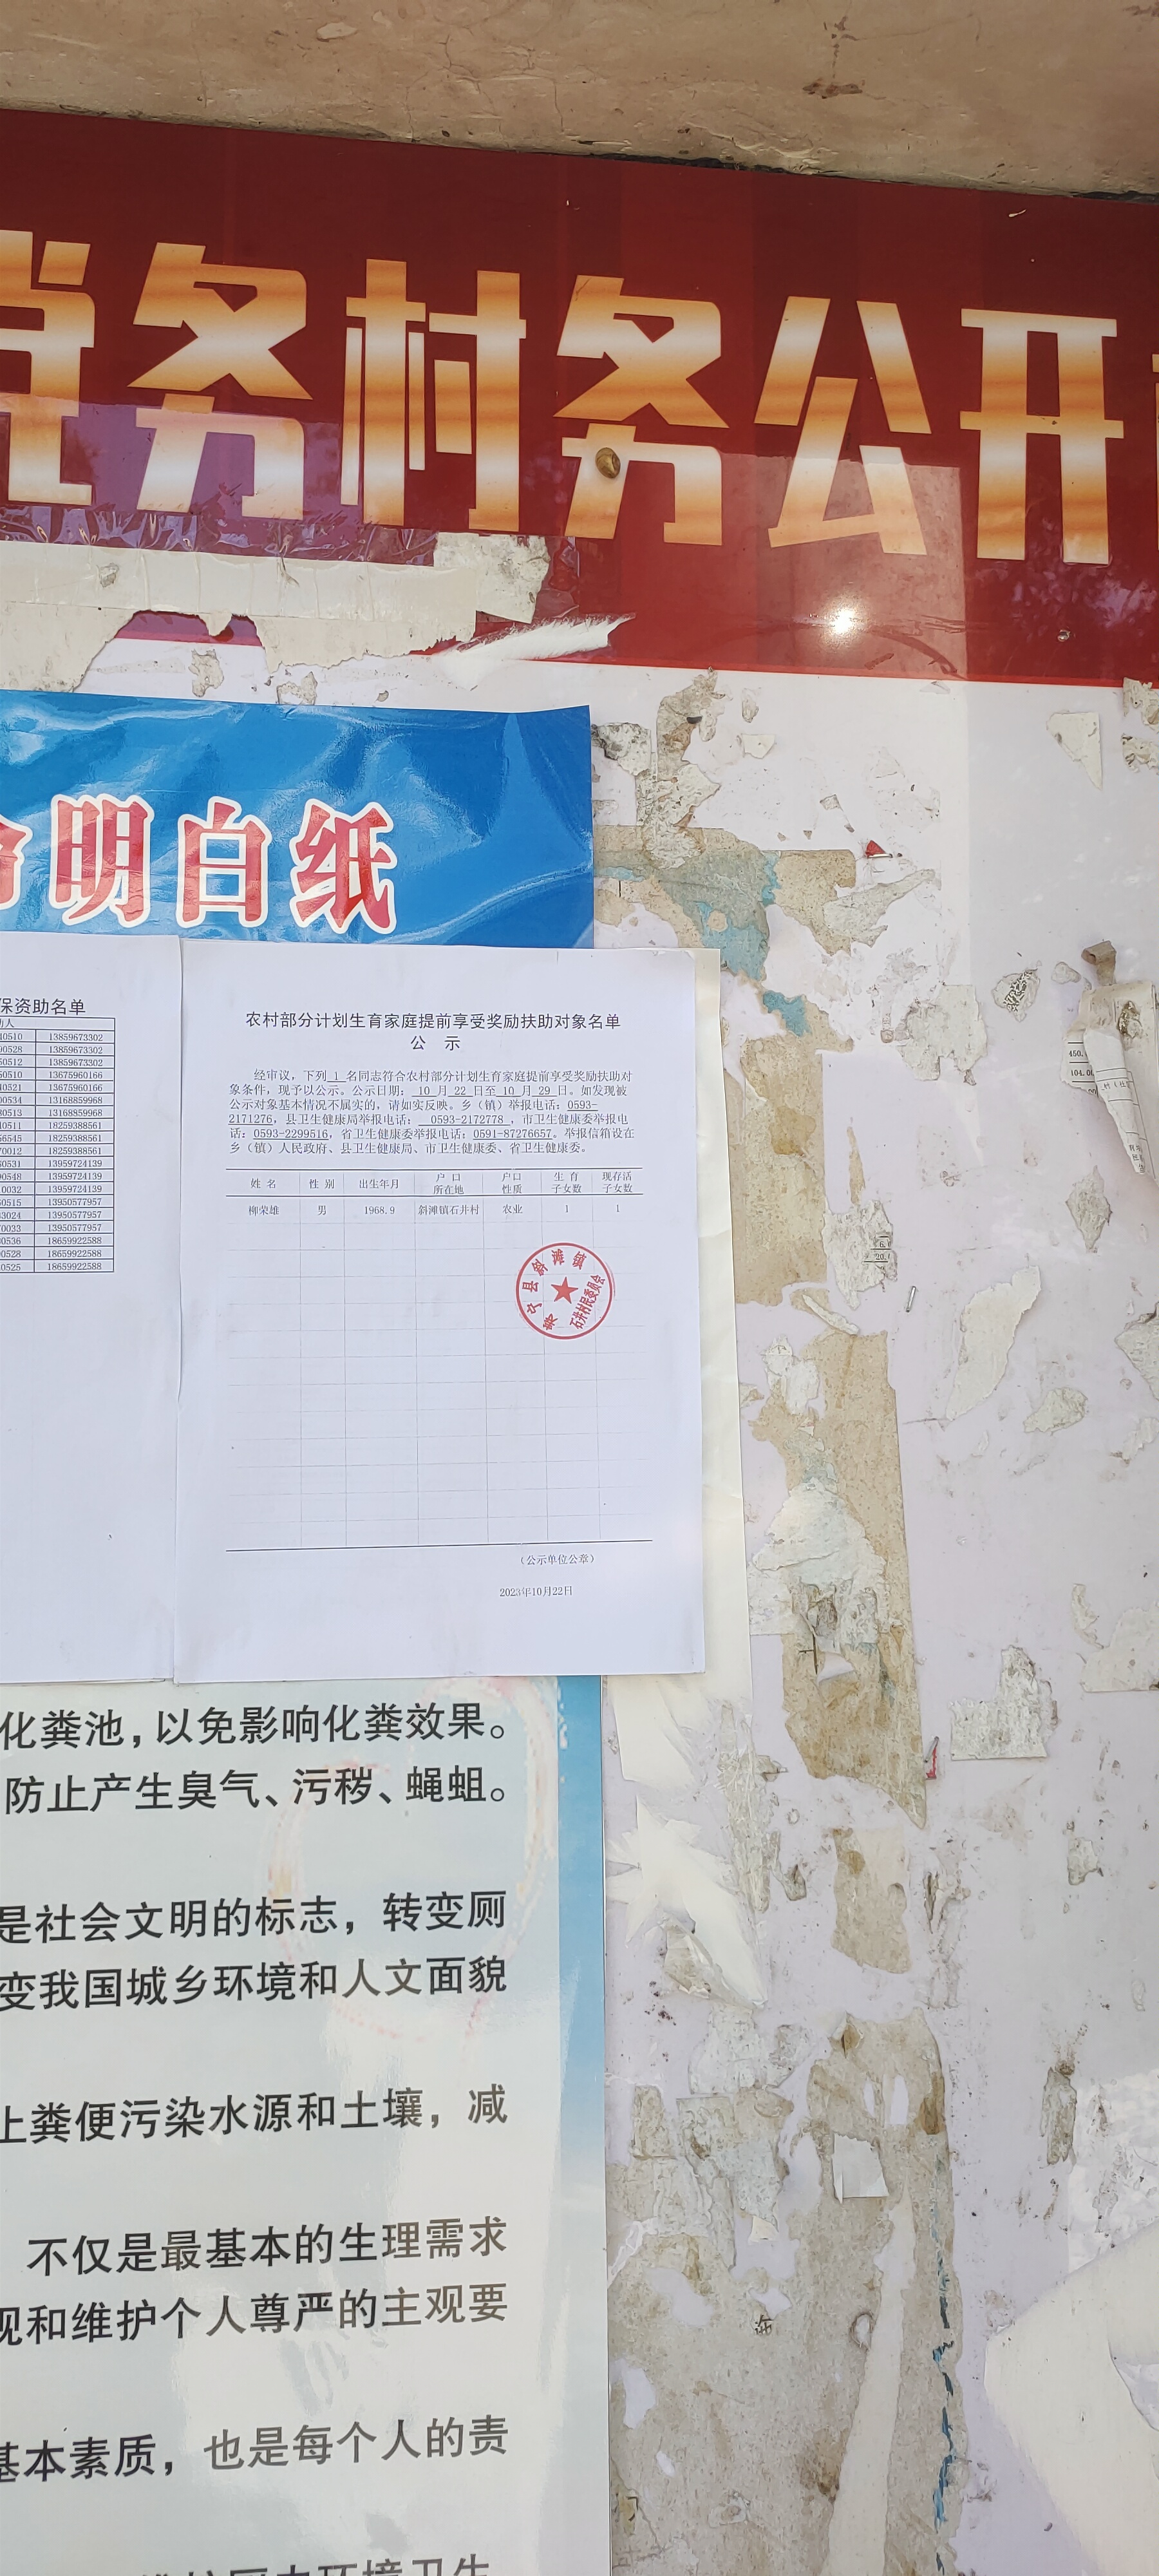 务村务公开
明白纸
保资助名单
0510 13859673302
0528 13859673302
0512 13859673302
0510 13675960166
0521 13675960166
00534 13168859968
0513 13168859968
0511 18259388561
6545 18259388561
0012 18259388561
0531 13959724139
0548 13959724139
0032 13959724139
0515 13950577957
3024 13950577957
0033 13950577957
0536 18659922588
0528 18659922588
0525 18659922588
农村部分计划生育家庭提前享受奖励扶助对象名单
公 示
经审议，下列 1 名同志符合农村部分计划生育家庭提前享受奖励扶助对
象条件，现予以公示。公示日期：10 月 22 日至 10 月 29 日。如发现被
公示对象基本情况不属实的，请如实反映。乡（镇）举报电话：0593-
2171276，县卫生健康局举报电话： 0593-2172778 ，市卫生健康委举报电
话：0593-2299516，省卫生健康委举报电话：0591-87276657。举报信箱设在
乡（镇）人民政府、县卫生健康局、市卫生健康委、省卫生健康委。
姓 名 性 别 出生年月 户 口 所在地 户口 性质 生 育 子女数 现存活 子女数
柳荣雄 男 1968.9 斜滩镇石井村 农业 1 1
寿宁县斜滩镇
石井村民委员会
（公示单位公章）
2023年10月22日
化粪池，以免影响化粪效果。
防止产生臭气、污秽、蝇蛆。
是社会文明的标志，转变厕
变我国城乡环境和人文面貌
止粪便污染水源和土壤，减
不仅是最基本的生理需求
观和维护个人尊严的主观要
基本素质，也是每个人的责
450.
104.0